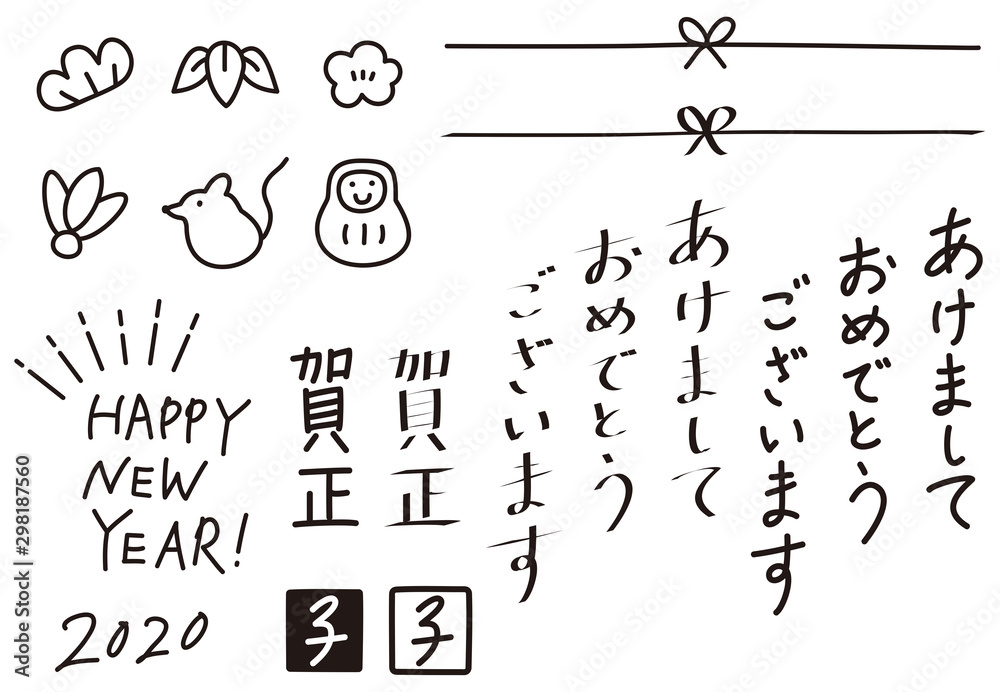 あけまして
おめでとう
ございます
あけまして
おめでとう
ございます
HAPPY
NEW
YEAR!
2020
賀正
賀正
子
子
Adobe Stock | #298187560